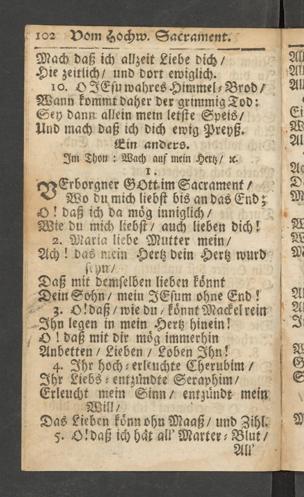 102 Vom Hochw. Sacrament.
Mach daß ich allzeit Liebe dich /
Hie zeitlich / und dort ewiglich.
10. O JEsu wahres Himmel-Brod /
Wann kommt daher der grimmig Tod:
Sey dann allein mein letste Speis /
Und mach daß ich dich ewig Preyß.
Ein anders.
Im Thon: Wach auf mein Hertz / ꝛc.
1.
VErborgner GOtt im Sacrament /
Wo du mich liebst bis an das End;
O! daß ich da mög inniglich /
Wie du mich liebst / auch lieben dich!
2. Maria liebe Mutter mein /
Ach! das mein Hertz dein Hertz wurd
seyn /
Daß mit demselben lieben könnt
Dein Sohn / mein JEsum ohne End!
3. O! daß / wie du / könnt Mackel rein
Ihn legen in mein Hertz hinein!
O! daß mit dir mög immerhin
Anbetten / Lieben / Loben Ihn!
4. Ihr hoch-erleuchte Cherubim /
Ihr Liebs-entzündte Seraphim /
Erleucht mein Sinn / entzündt mein
Will /
Das Lieben könn ohn Maaß / und Zihl.
5. O! daß ich hät all' Marter-Blut /
All'